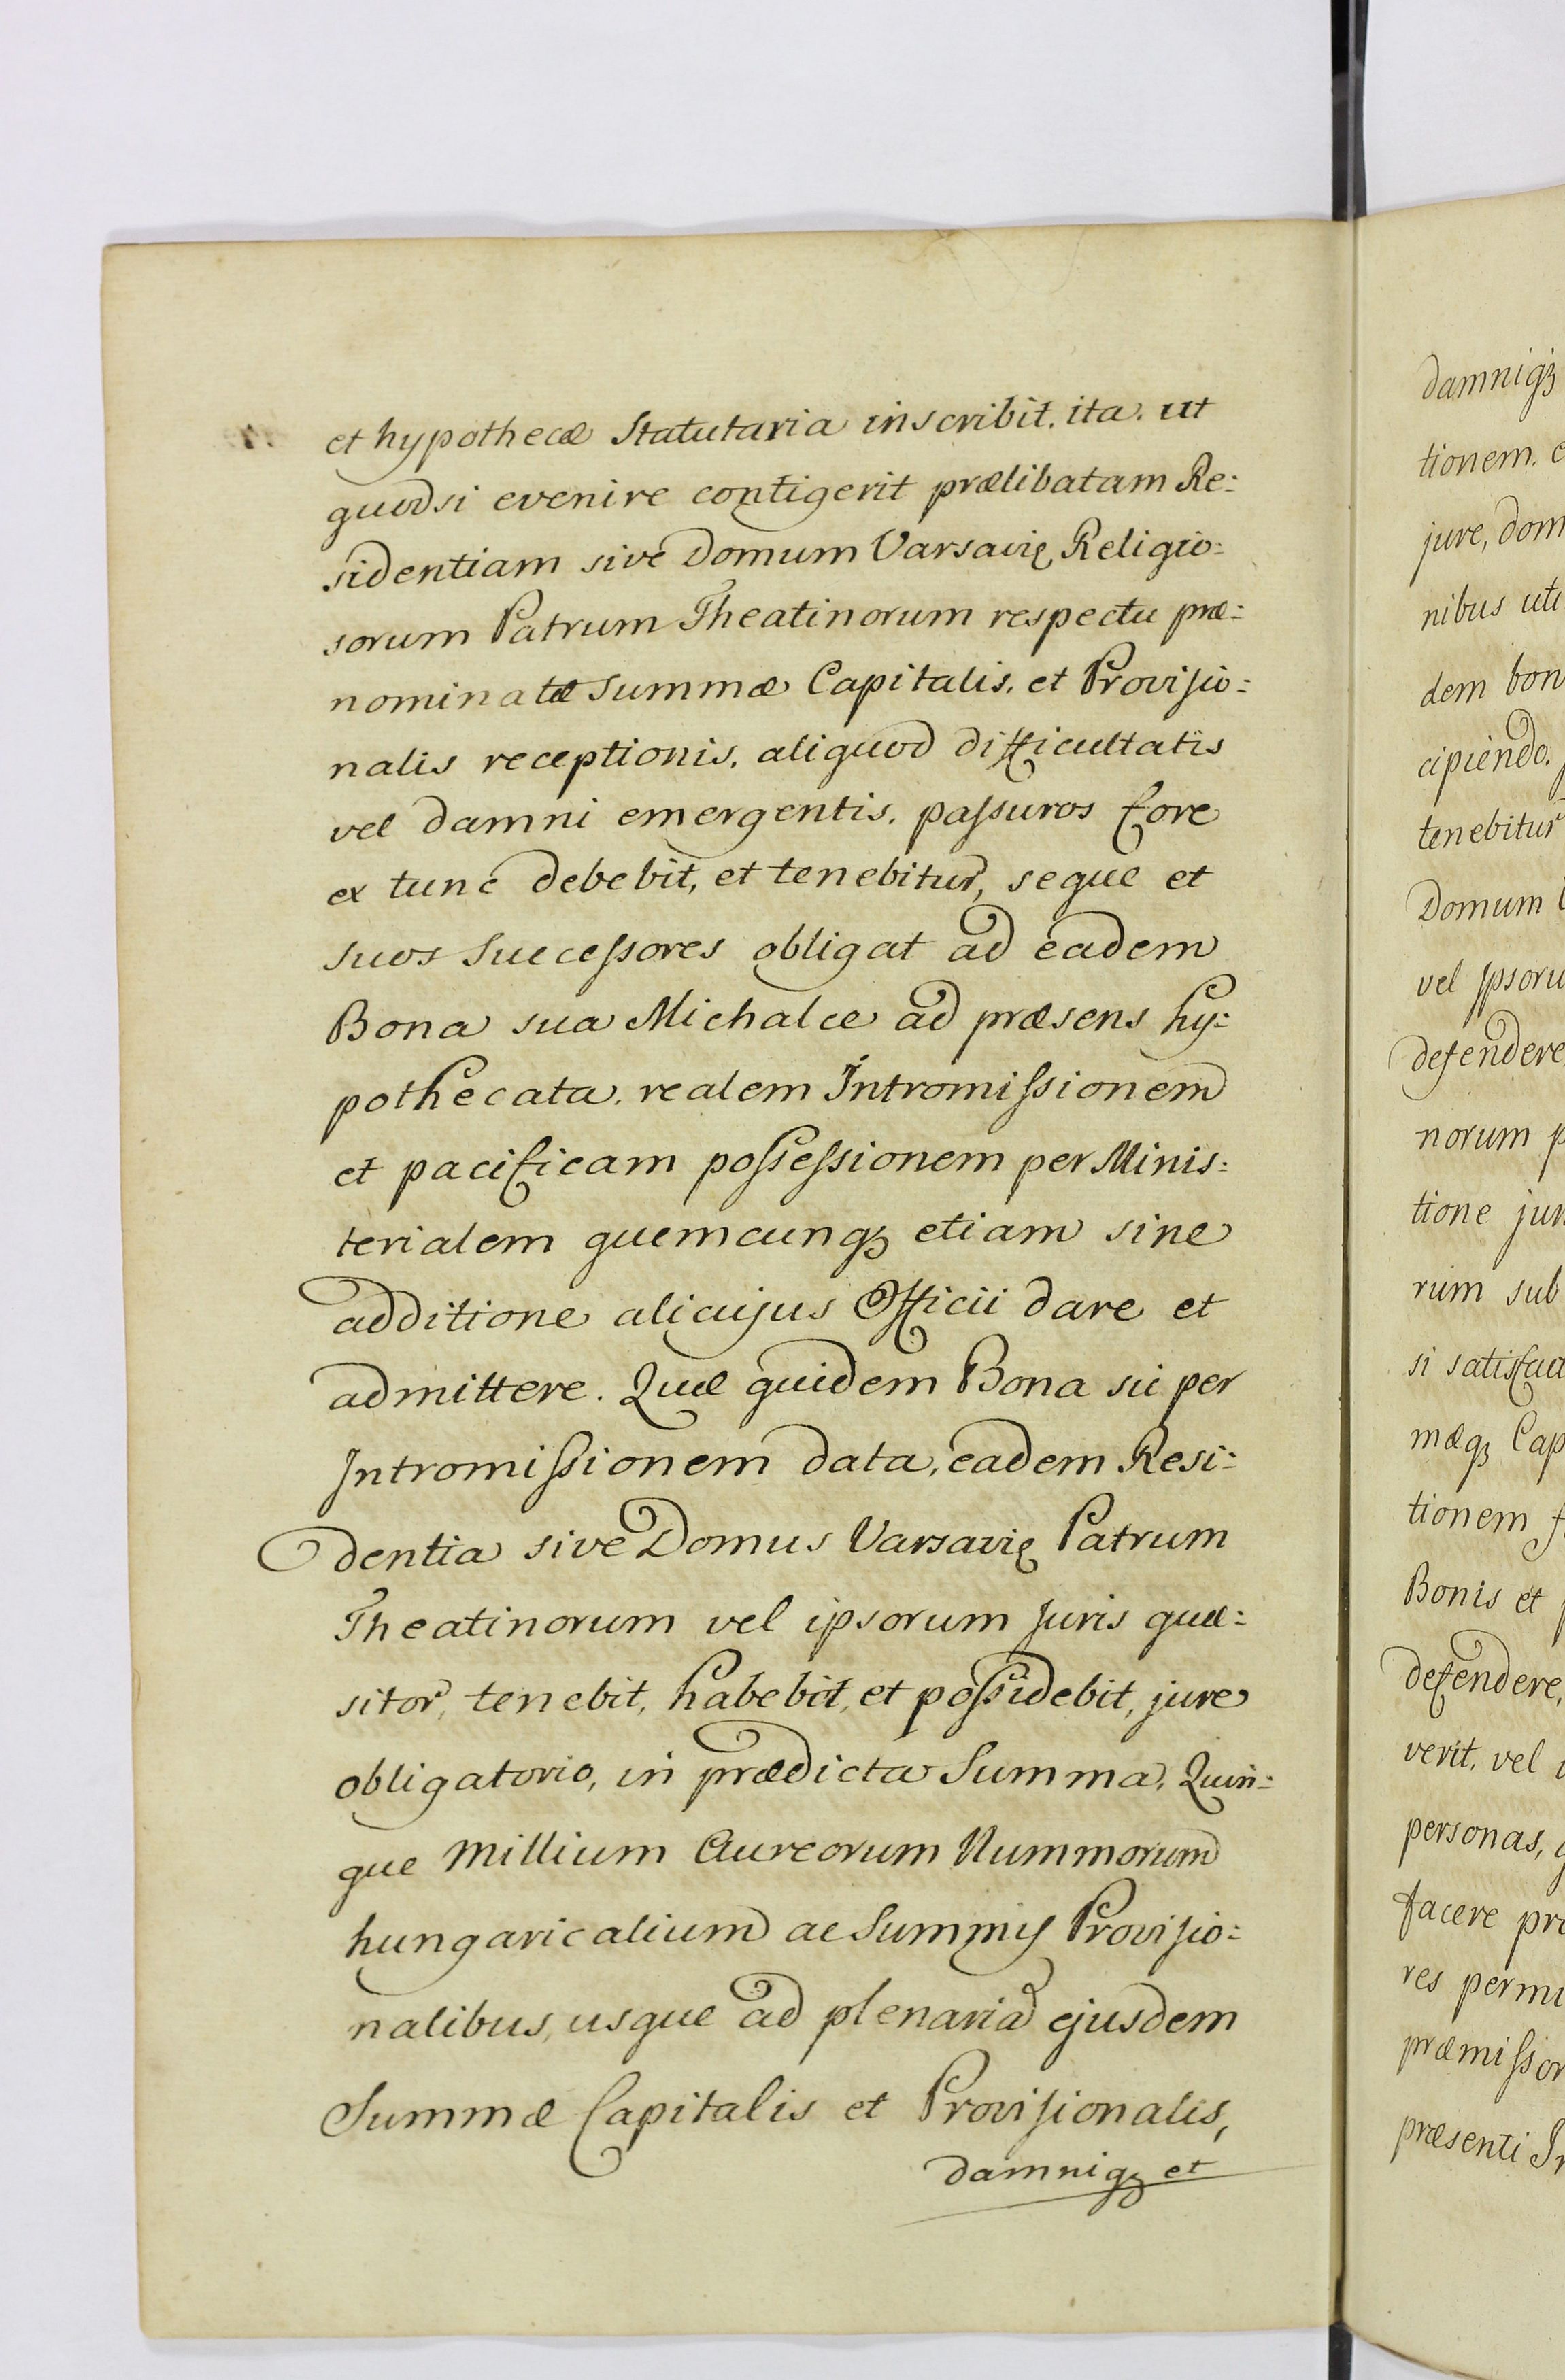 et hypothecæ Statutaria inscribit. ita. ut
quodsi evenire contigerit prælibatam Re:
sidentiam sive Domum Varsavię Religio:
sorum Patrum Theatinorum respectu præ:
nominatæ Summæ Capitalis, et Provisio:
nalis receptionis, aliquod difficultatis
vel damni emergentis, passuros fore
ex tunc debebit, et tenebitur, seque et
suos Successores obligat ad eadem
Bona sua Michalce ad præsens hy:
pothecata, realem Intromissionem
et pacificam possessionem per Minis:
terialem quemcunqꝫ etiam sine
additione alicujus Officii dare et
admittere. Quæ quidem Bona sic per
Intromissionem data, eadem Resi:
dentia sive Domus Varsavię Patrum
Theatinorum vel ipsorum Juris quæ:
sitor, tenebit, habebit, et possidebit, jure
obligatorio, in prædicta Summa, Quin:
que Millium Aureorum Nummorum
hungaricalium ac Summis Provisio:
nalibus, usque ad plenariã ejusdem
Summæ Capitalis et Provisionalis,
damniqꝫ et
damniqꝫ
tionem. e
jure, dom
nibus uti
dem bon
cipiendo.
tenebitur
Domum
vel ipsoru
defendere
norum p
tione jur
rum sub
si satisfact
mæqꝫ Cap
tionem f
Bonis et
defendere,
verit, vel
personas,
facere pro
res permi
præmissor
præsenti In